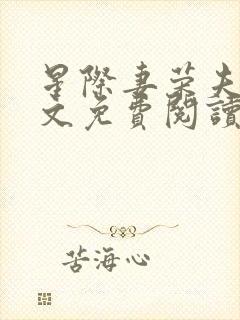 星際妻榮夫
文免費閱讀
苦海心